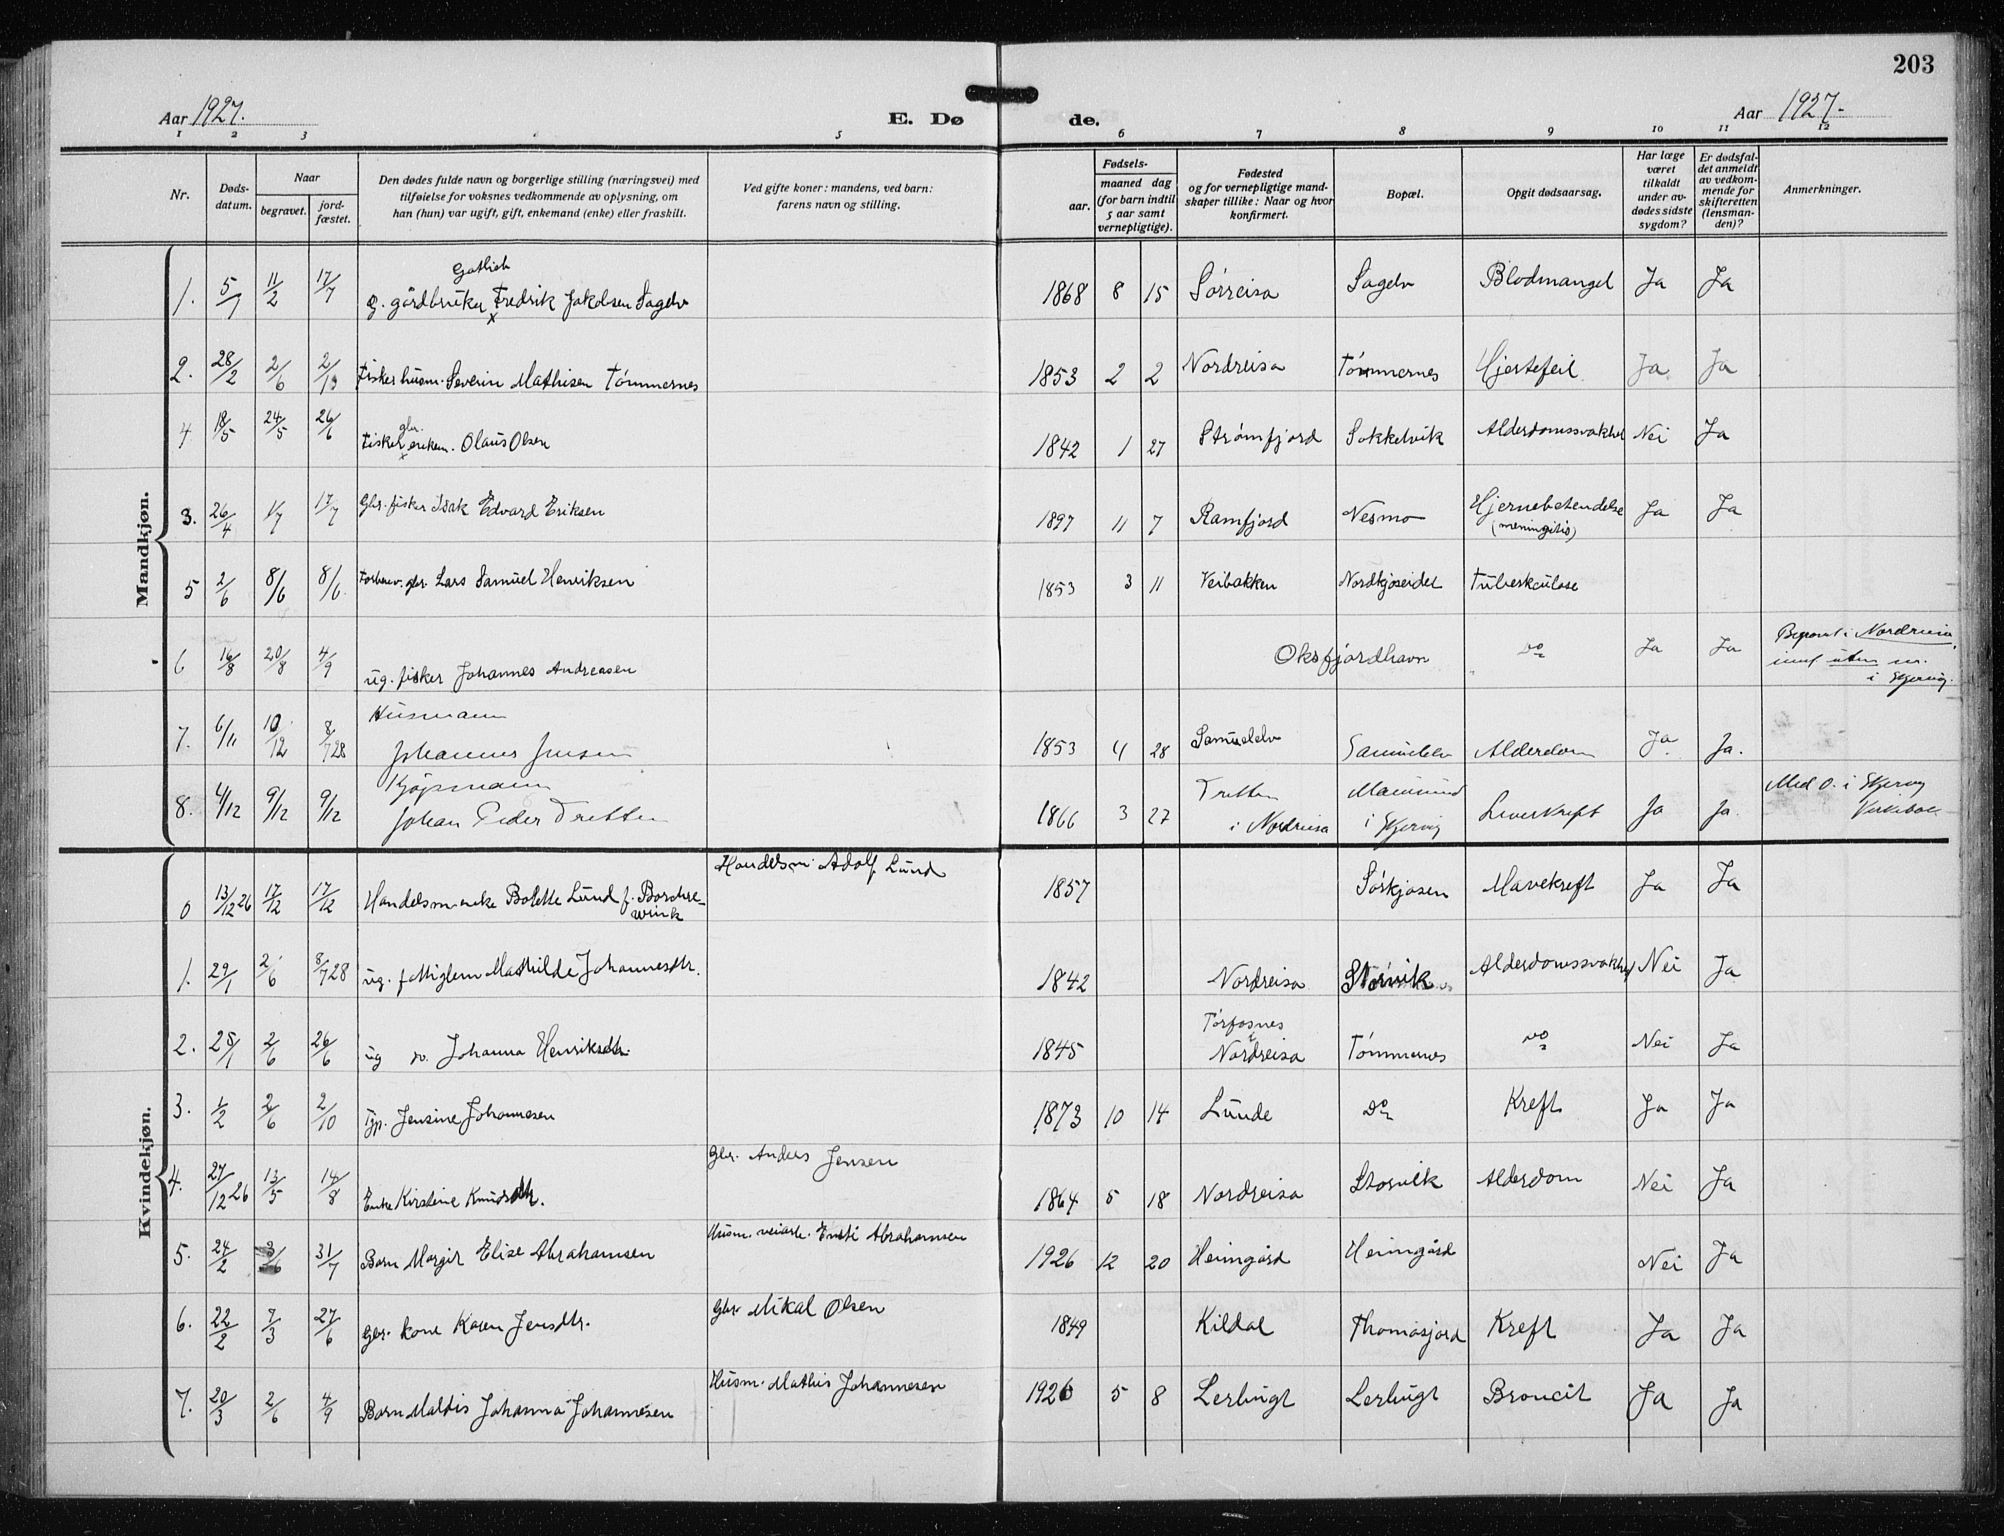 203
Aar 1927. E. Dø de. Aar 1927.
1 2 3 4 5 6 7 8 9 10 11 12
Nr. Døds-datum. Naar begravet. jord-fæstet. Den dødes fulde navn og borgerlige stilling (næringsvei) med tilføielse for voksnes vedkommende av oplysning, om han (hun) var ugift, gift, enkemand (enke) eller fraskilt. Ved gifte koner: mandens, ved barn: farens navn og stilling. Fødsels- aar. maaned dag (for barn indtil 5 aar samt vernepligtige). Fødested og for vernepligtige mand-skaper tillike: Naar og hvor konfirmert. Bopæl. Opgit dødsaarsag. Har læge været tilkaldt under av-dødes sidste sygdom? Er dødsfal-det anmeldt av vedkom-mende for skifteretten (lensman-den)? Anmerkninger.
Mandkjøn.
1. 5/1 11/2 17/7 g. gårdbruker Gotlieb Fredrik Jakobsen Sagelv 1868 8 15 Sørreisa Sagelv Blodmangel Ja Ja
2. 28/2 2/6 2/10 Fisker husm. Severin Mathisen Tømmernes 1853 2 2 Nordreisa Tømmernes Hjertefeil Ja Ja
4 18/5 24/5 26/6 Fisker gbr. enkem. Olaus Olsen 1842 1 27 Strømfjord Sokkelvik Alderdomssvakhet Nei Ja
3. 26/4 1/7 17/7 Gbr. fisker Isak Edvard Eriksen 1897 11 7 Ramfjord Nesmo Hjernebetendelse (meningitis) Ja Ja
5 2/6 8/6 8/6 Forhenv. gbr. Lars Samuel Henriksen 1853 3 11 Veibakken Nordkjoseidet Tuberkulose
6 16/8 20/8 4/9 ug. fisker Johannes Andreasen Oksfjordhavn do Ja Ja Begravet i Nordreisa, innf uten nr. i Skjervøy.
7. 6/11 10/12 8/7 28 Husmann Johannes Jensen 1853 4 28 Samuelelv Samuelelv Alderdom Ja. Ja.
8. 4/12 9/12 9/12 Kjøpmann Johan Peder Tretten 1866 3 27 Tretten i Nordreisa Maursund i Skjervøy Leverkreft Ja Ja. Med O. i Skjervøy Kirkebok
Kvindekjøn.
0 13/12 26 17/12 17/12 Handelsm. enke Bolette Lund f. Borchre-vink Handelsm. Adolf Lund 1857 Sørkjosen Mavekreft Ja Ja
1. 29/1 2/6 8/7 28 ug. fattiglem Mathilde Johannesdtr. 1842 Nordreisa Storvik Alderdomssvakhet Nei Ja
2. 25/1 2/6 26/6 ug do. Johanna Henriksdtr. 1845 Tørfosnes Nordreisa Tømmernes do Nei Ja
3. 1/2 2/6 2/10 Tjp. Jensine Johannesen 1873 10 14 Lunde do Kreft Ja Ja
4. 27/12 26 13/5 14/8 Enke Kirstine Knudsdtr. Gbr. Anders Jensen 1864 5 18 Nordreisa Storvik Alderdom Nei Ja
5. 24/2 3/6 31/7 Barn Margit Elise Abrahamsen Husm. veiarb. Ensti Abrahamsen 1926 12 20 Heimgård Heimgård Nei Ja
6. 22/2 7/3 27/6 Gbr. kone Karen Jensdtr. Gbr. Mikal Olsen 1849 Kildal Thomasjord Kreft Ja Ja
7. 20/3 2/6 4/9 Barn Maldis Johanna Johannesen Husm. Mathis Johannesen 1926 5 8 Lerbugt Lerbugt Broncit Ja Ja